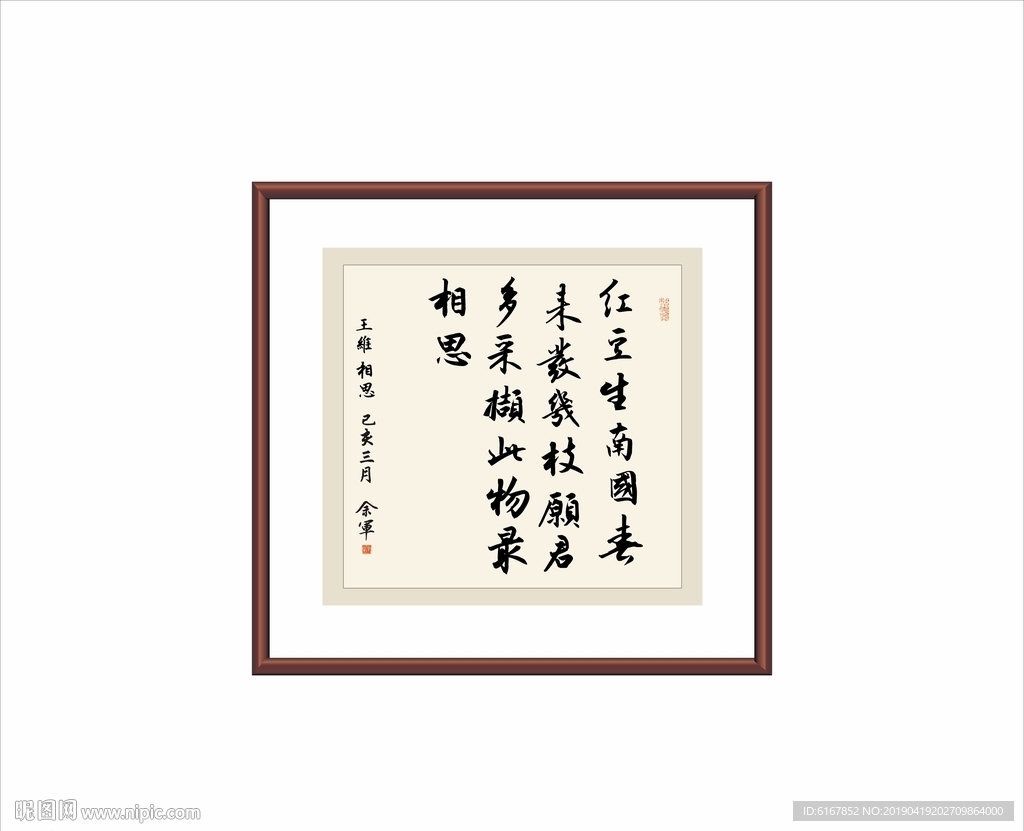 红豆生南國春
来發幾枝願君
多采擷此物最
相思
王維 相思 己亥三月 余軍
昵图网 www.nipic.com
ID:6167852 NO:20190419202709864000